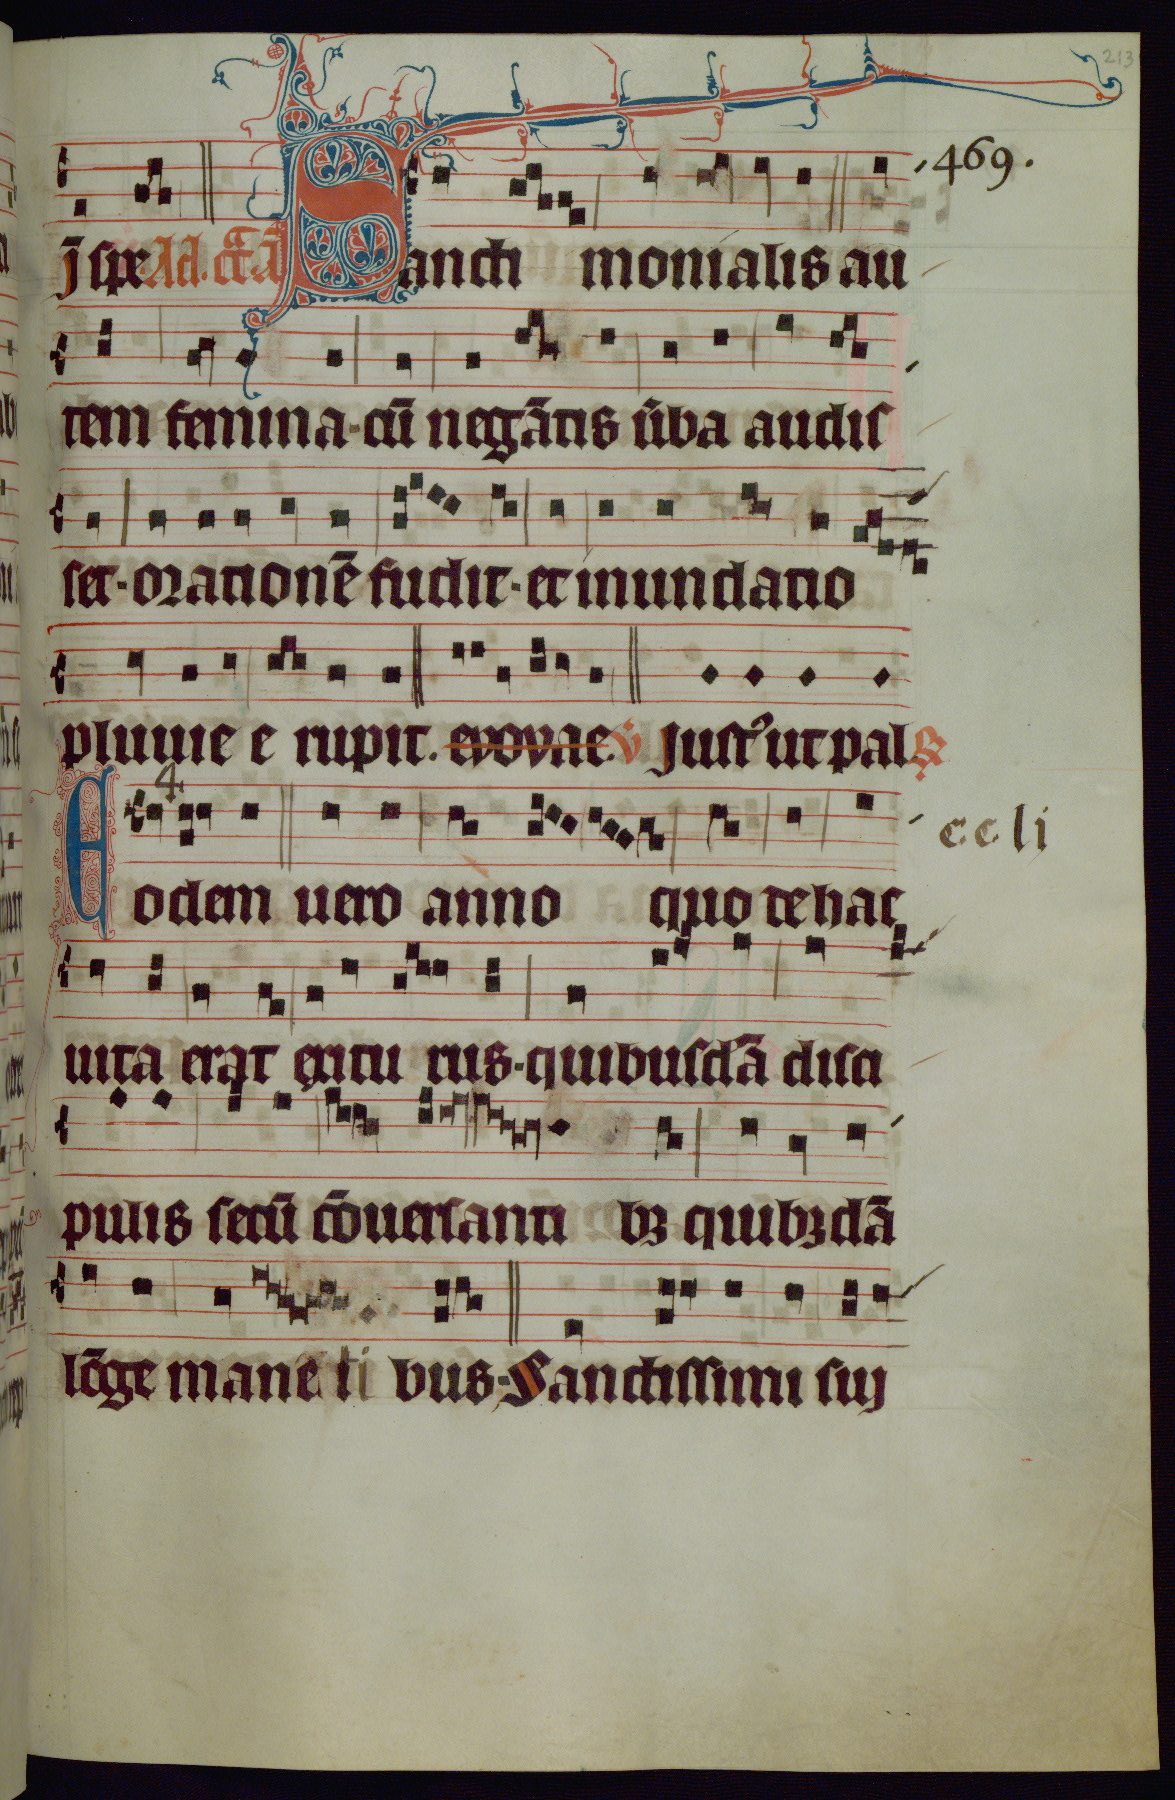 213
469.
j spe Ad. ct̄ā Sancti monialis au
tem femina · cū negātis ūba audis
set · orationē fudit · et inundatio
pluuie e rupit. euovae. v̄ Just᾽ ut pal R
4
Eodem uero anno quo te hac
ccli
uita erat exitu rus · quibusdā disci
pulis secū cōuersanti bꝫ quibꝫdā
lōge mane ti bus · Sanctissimi suj